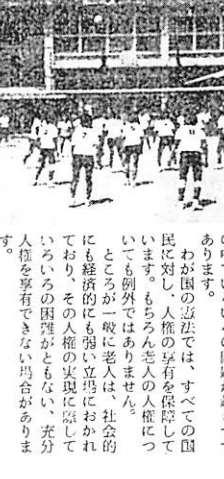 あります。
わが国の憲法では、すべての国
民に対し、人権の享有を保障して
います。もちろん老人の人権につ
いても例外ではありません。
ところが一般に老人は、社会的
にも経済的にも弱い立場におかれ
ており、その人権の実現に際して
いろいろの困難がともない、充分
人権を享有できない場合がありま
す。